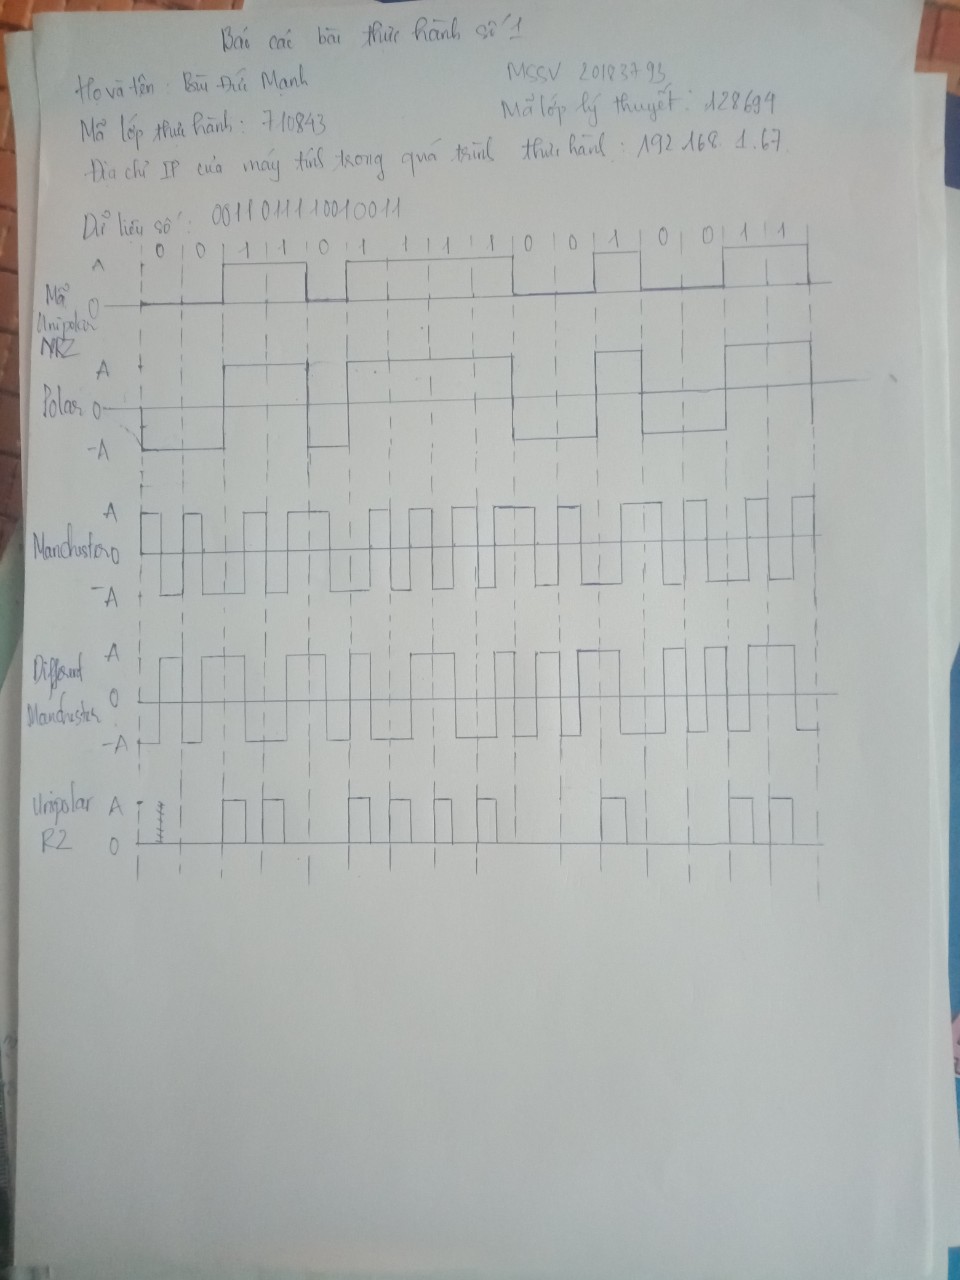 Báo các bài thực hành số 1
Họ và tên: Bùi Đức Mạnh MSSV 20183793
Mã lớp thực hành: 710843 Mã lớp lý thuyết: 128699
Địa chỉ IP của máy tính trong quá trình thực hành: 192 168. 1.67
Dữ liệu số: 0011011110010011
0 0 1 1 0 1 1 1 1 0 0 1 0 0 1 1
A
Mã 0
Unipolar
NRZ
A
Polar 0
-A
A
Manchester 0
-A
A
Different
0
Manchester
-A
Unipolar A
RZ 0